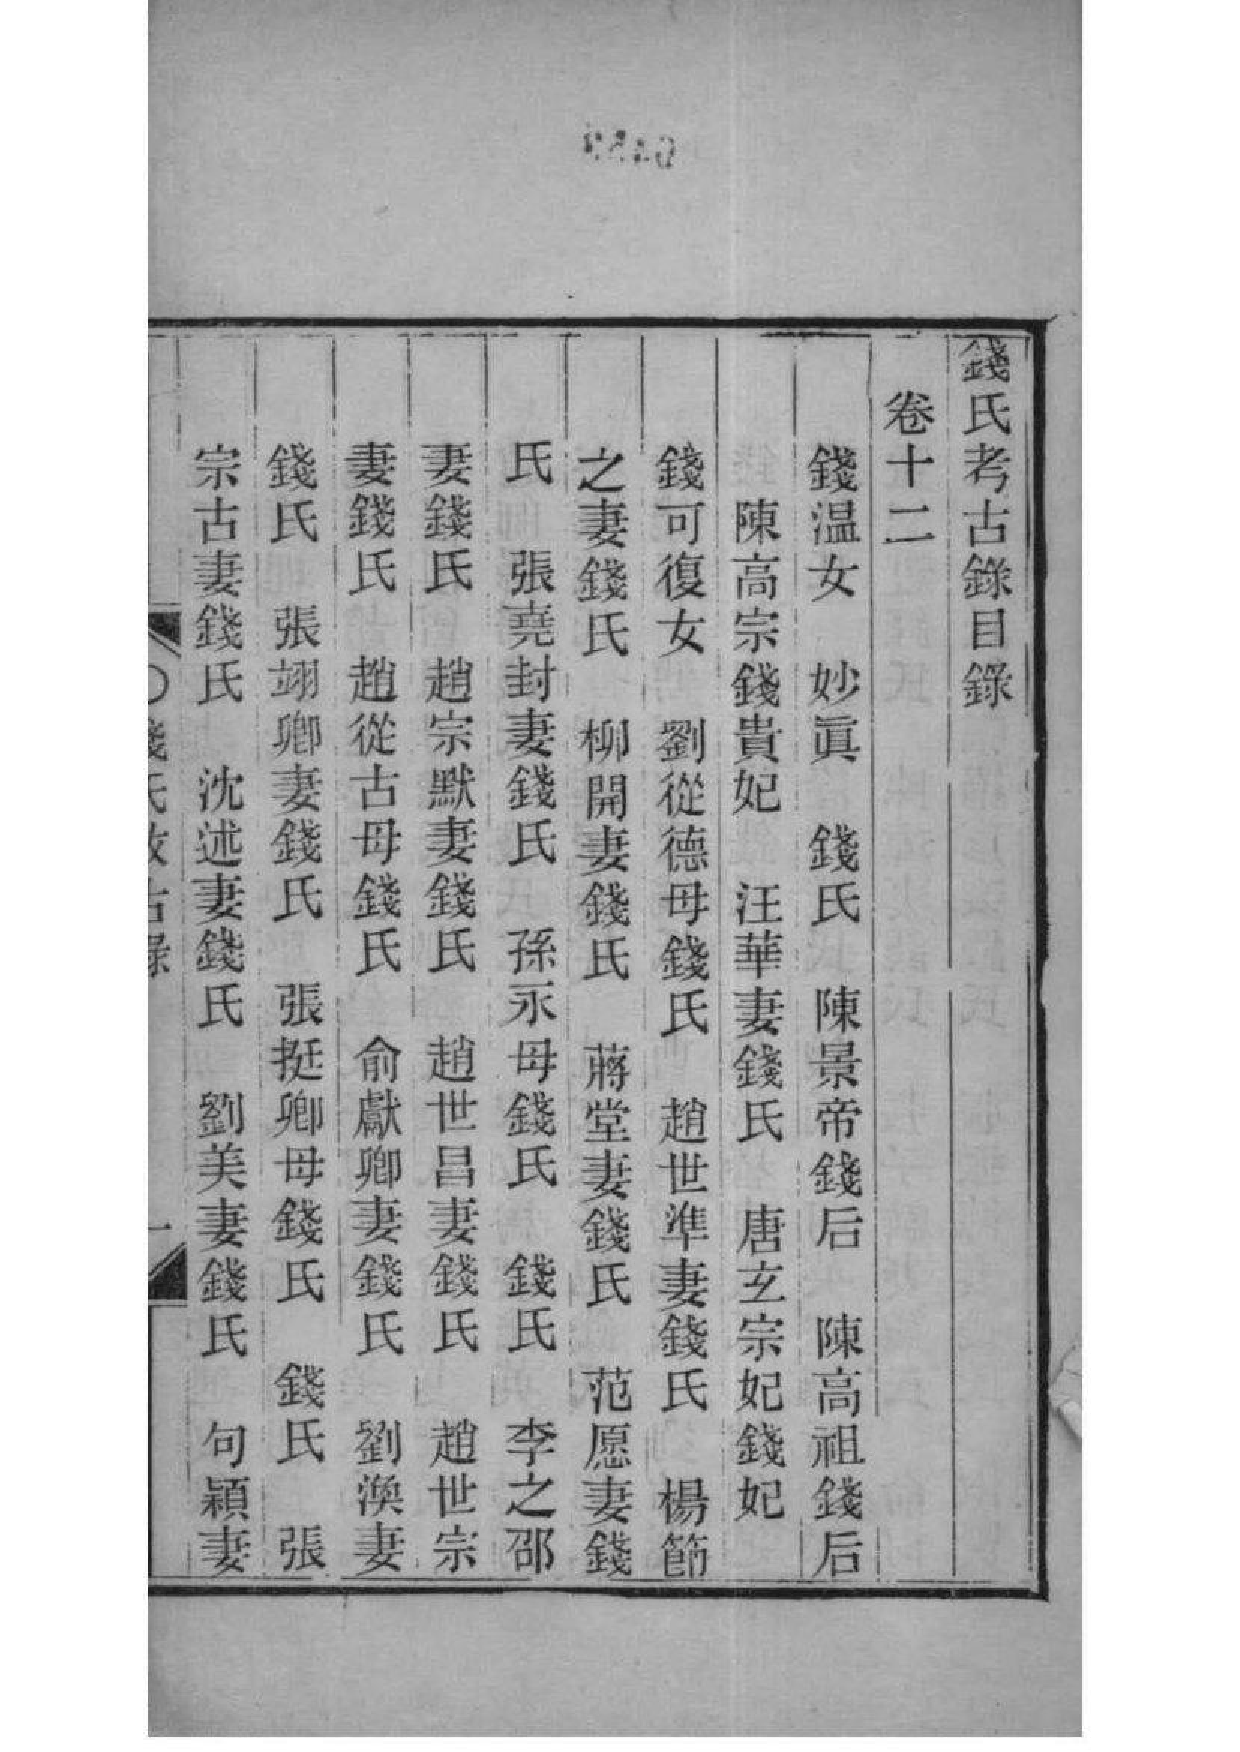 錢氏考古錄目錄
卷十二
錢温女　妙眞　錢氏　陳景帝錢后　陳高祖錢后
陳高宗錢貴妃　汪華妻錢氏　唐玄宗妃錢妃
錢可復女　劉從德母錢氏　趙世準妻錢氏　楊節
之妻錢氏　柳開妻錢氏　蔣堂妻錢氏　范愿妻錢
氏　張堯封妻錢氏　孫永母錢氏　錢氏　李之邵
妻錢氏　趙宗默妻錢氏　趙世昌妻錢氏　趙世宗
妻錢氏　趙從古母錢氏　俞獻卿妻錢氏　劉渙妻
錢氏　張翊卿妻錢氏　張挺卿母錢氏　錢氏　張
宗古妻錢氏　沈述妻錢氏　劉美妻錢氏　句穎妻
錢氏攷古录　一